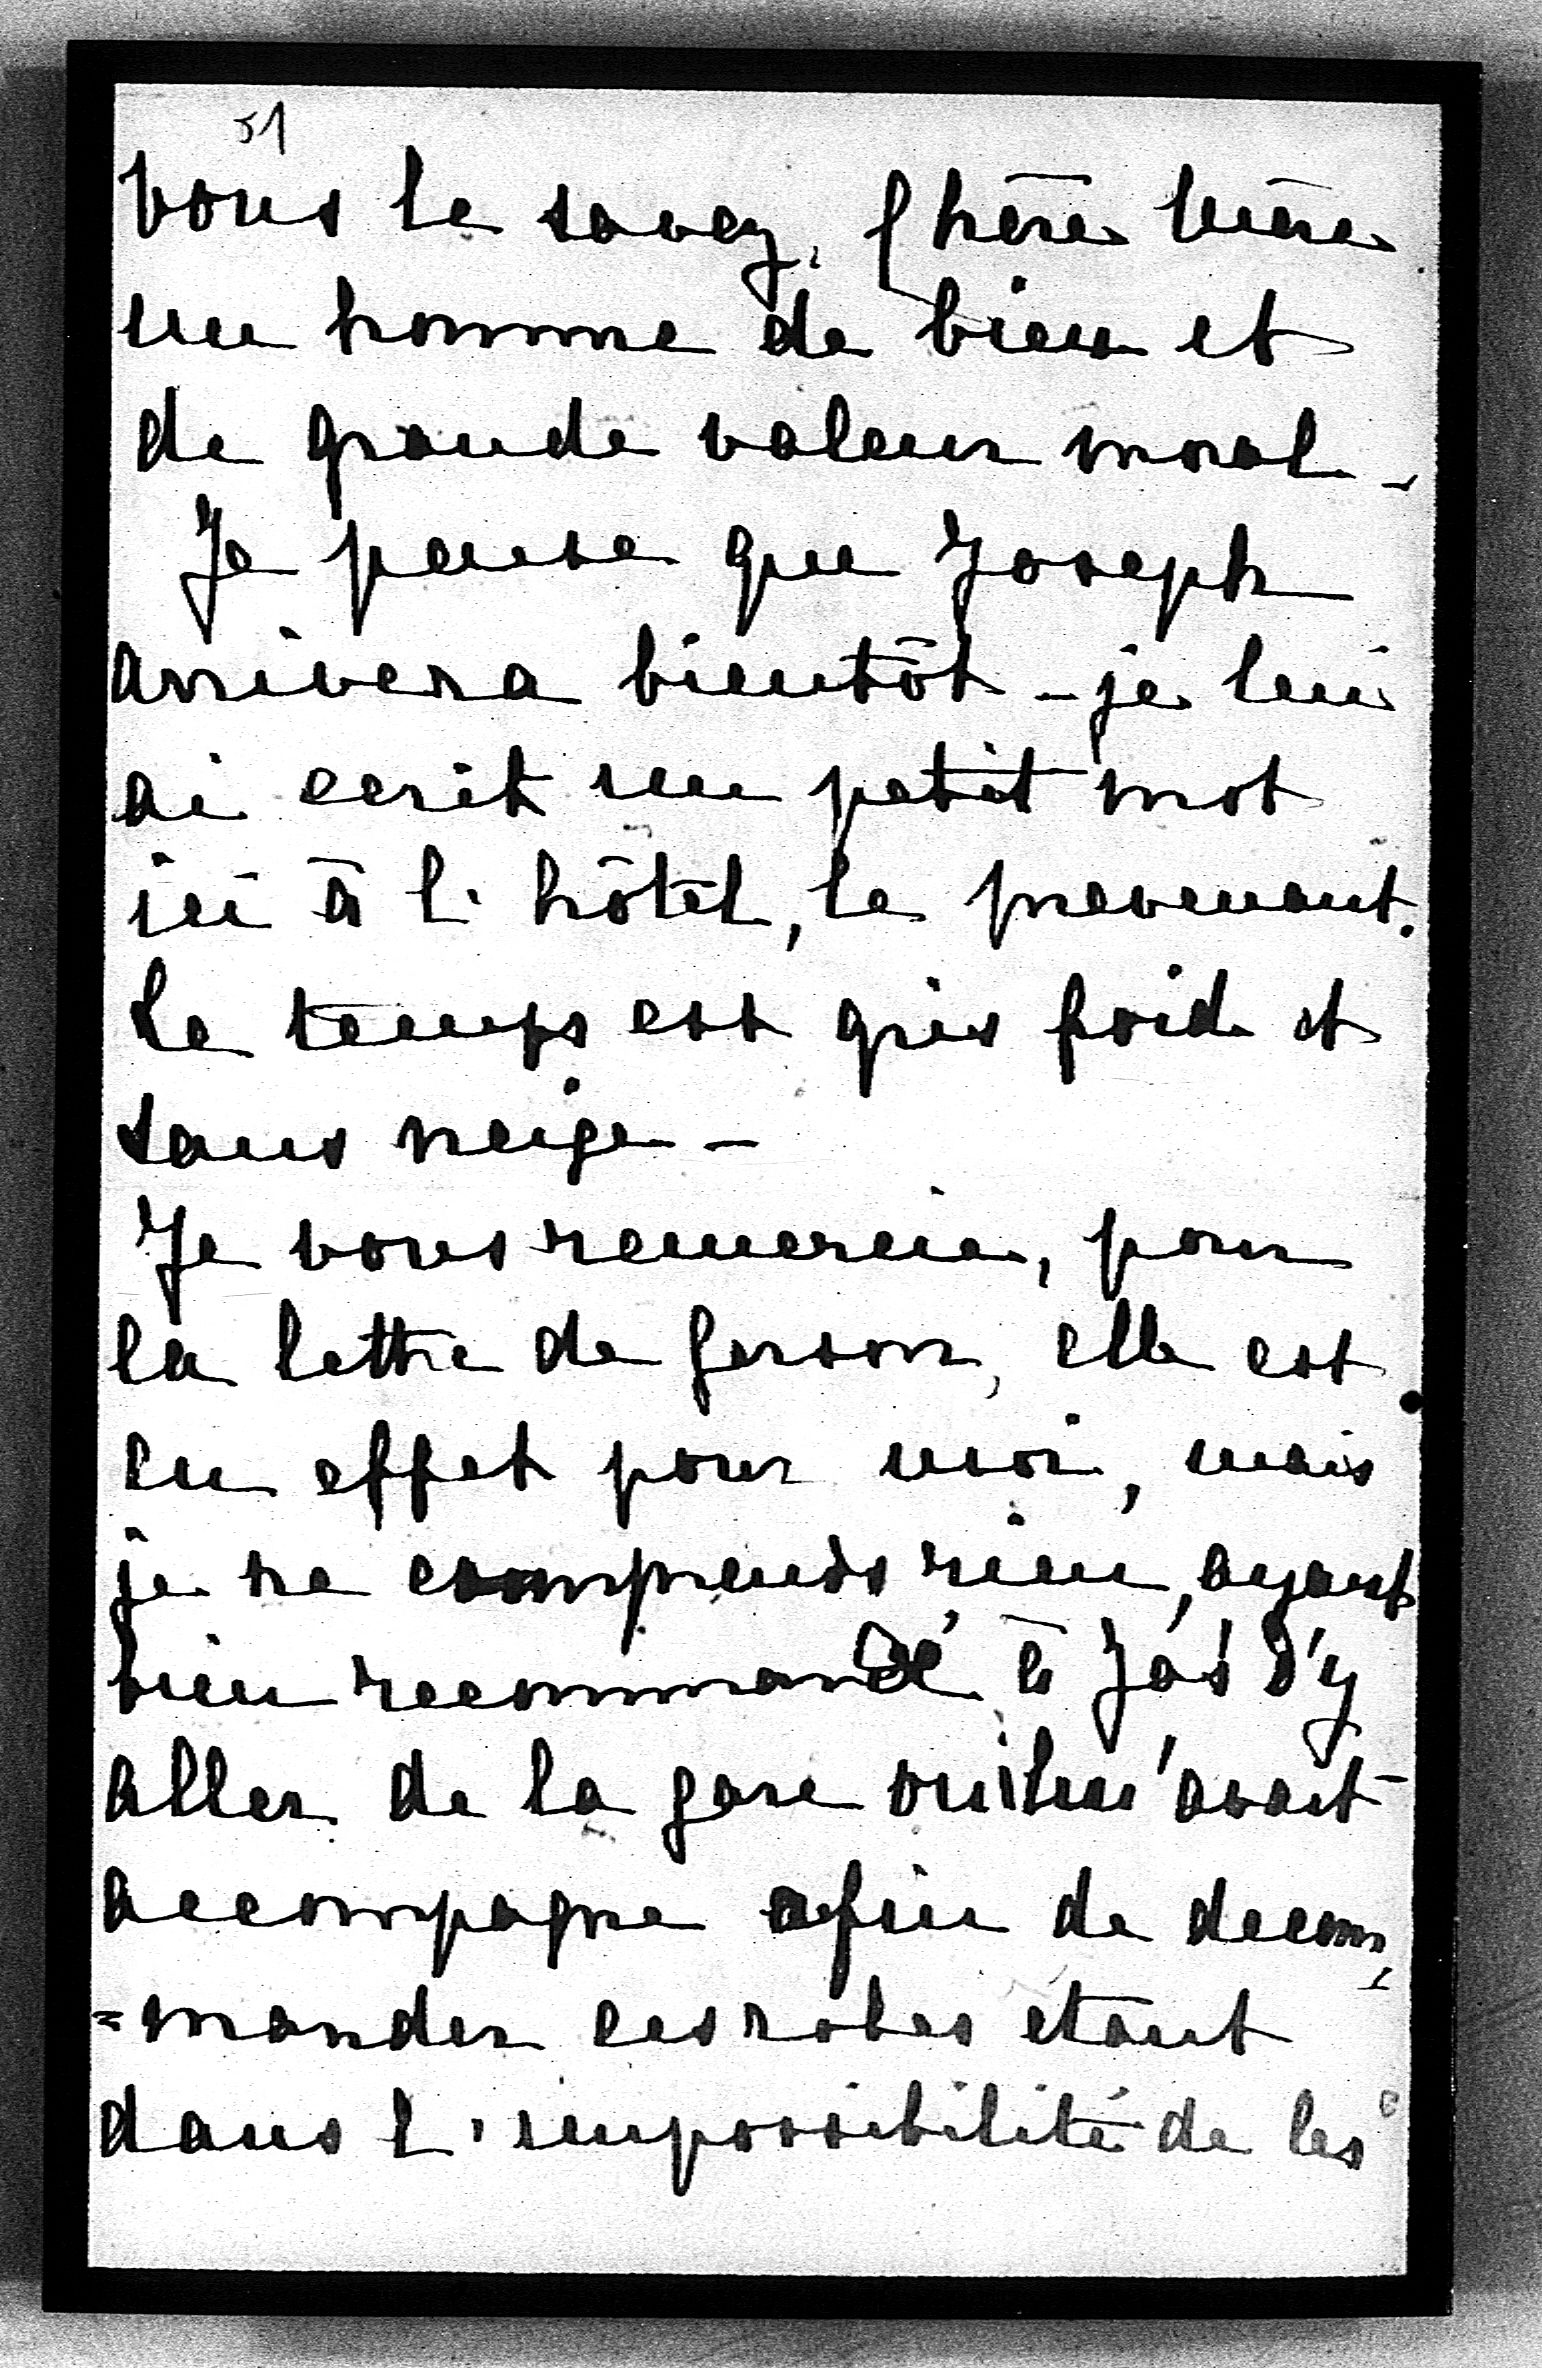 51
Vous le savez, Chère Mère
un homme de bien et
de grande valeur moral -
Je pense que Joseph
arrivera bientôt - je lui
ai ecrit un petit mot
ici à l'hôtel, le prevenant.
Le temps est gris froid et
sans neige -
Je vous remercie, pour
la lettre de Gerson, elle est
en effet pour moi, mais
je ne comprends rien, ayant
bien recommandé à Jos d'y
aller de la gare où il m'avait
accompagne afin de decom
=mander ces robes etant
dans l'impossibilité de les